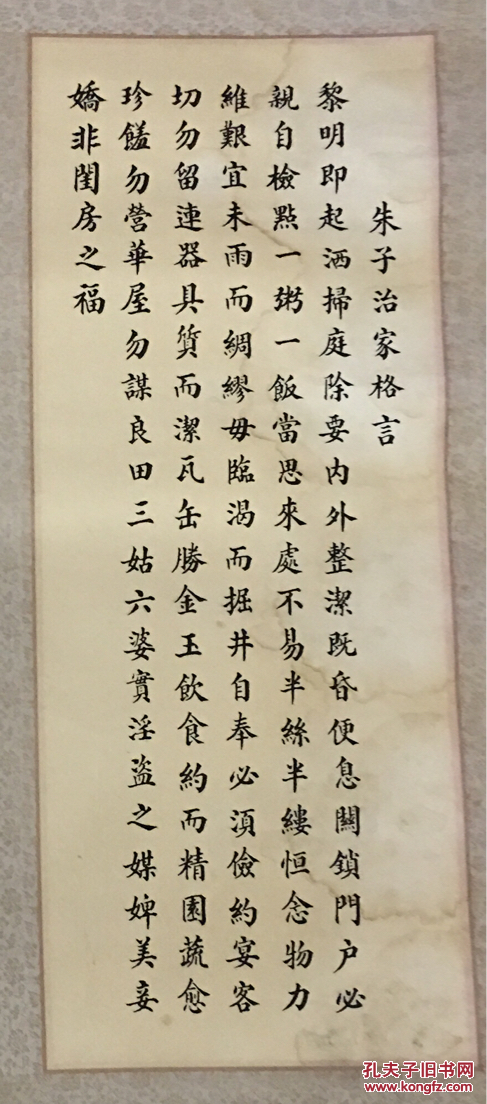 朱子治家格言
黎明即起洒掃庭除要内外整潔既昏便息關鎖門户必
親自檢點一粥一飯當思來處不易半絲半縷恒念物力
維艱宜未雨而綢繆毋臨渴而掘井自奉必須儉約宴客
切勿留連器具質而潔瓦缶勝金玉飲食約而精園蔬愈
珍饁勿營華屋勿謀良田三姑六婆實淫盜之媒婢美妾
嬌非閨房之福
孔夫子旧书网
www.kongfz.com